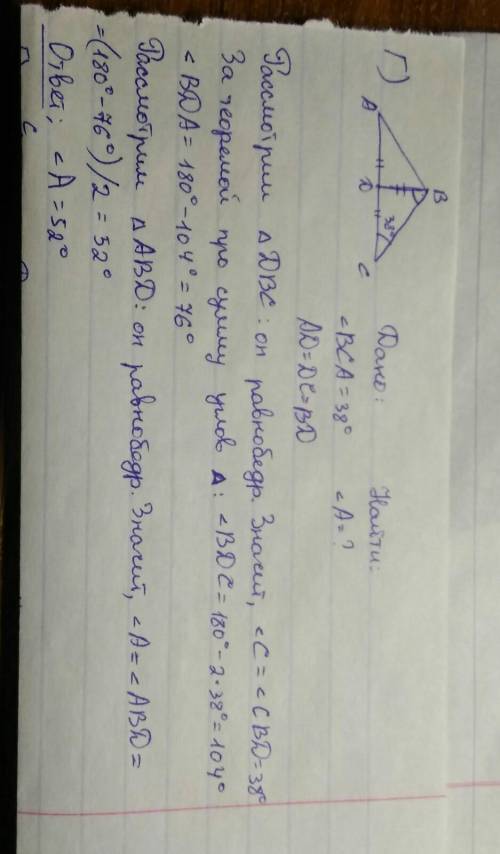 Г)
B
A
D
38°
C
Дано:
Найти:
∠BCA = 38°
∠A = ?
AD = DC = BD
Рассмотрим △ DBC: он равнобедр. Значит, ∠C = ∠CBD = 38°
За теоремой про сумму углов △: ∠BDC = 180° - 2·38° = 104°
∠BDA = 180° - 104° = 76°
Рассмотрим △ABD: он равнобедр. Значит, ∠A = ∠ABD =
= (180° - 76°)/2 = 52°
Ответ: ∠A = 52°